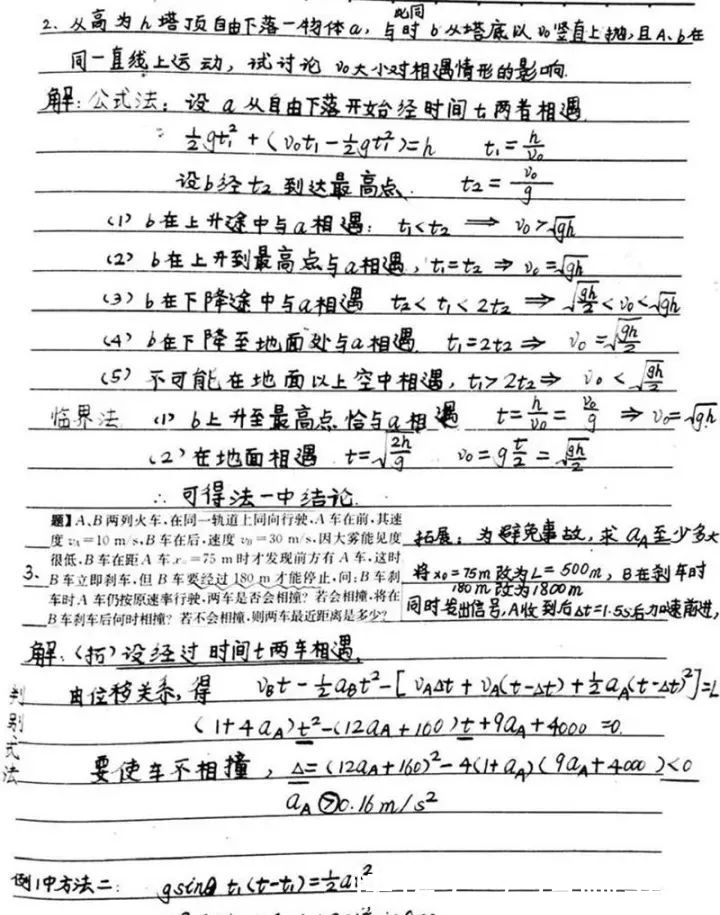 此同
2. 从高为h塔顶自由下落一物体a, 与时b从塔底以v₀竖直上抛, 且A、b在
同一直线上运动, 试讨论 v₀大小对相遇情形的影响.
解: 公式法: 设 a 从自由下落开始经时间t₁两者相遇.
½gt₁² + (v₀t₁ - ½gt₁²) = h t₁ = h/v₀
设b经t₂到达最高点. t₂ = v₀/g
(1) b在上升途中与a相遇: t₁<t₂ ⟹ v₀>√gh
(2) b在上升到最高点与a相遇, t₁=t₂ ⇒ v₀=√gh
(3) b在下降途中与a相遇 t₂<t₁<2t₂ ⇒ √(gh/2)<v₀<√gh
(4) b在下降至地面处与a相遇. t₁=2t₂ ⇒ v₀=√(gh/2)
(5) 不可能在地面以上空中相遇, t₁>2t₂ ⇒ v₀<√(gh/2)
临界法 (1) b上升至最高点恰与a相遇 t=h/v₀=v₀/g ⇒ v₀=√gh
(2) 在地面相遇 t=√(2h/g) v₀=g t/2=√(gh/2)
∴ 可得法一中结论.
3.
题】A、B两列火车,在同一轨道上同向行驶,A车在前,其速
度vA=10 m/s,B车在后,速度vB=30 m/s,因大雾能见度
很低,B车在距A车x₀=75 m时才发现前方有A车,这时
B车立即刹车,但B车要经过180 m才能停止,问:B车刹
车时A车仍按原速率行驶,两车是否会相撞?若会相撞,将在
B车刹车后何时相撞?若不会相撞,则两车最近距离是多少?
拓展: 为避免事故, 求 aA至少多大
将x₀=75m改为L=500m, B在刹车时
180m改为1800m
同时发出信号, A收到后Δt=1.5s后加速前进,
解: (拓) 设经过时间t两车相遇.
判别式法
由位移关系, 得 vBt - ½aBt² - [vAΔt + vA(t-Δt) + ½aA(t-Δt)²]=L
(1+4aA)t² - (12aA+160)t + 9aA + 4000 = 0.
要使车不相撞, Δ=(12aA+160)² - 4(1+aA)(9aA+4000)<0
aA>0.16m/s²
例1中方法二: gsinθ t₁(t-t₁)=½at²